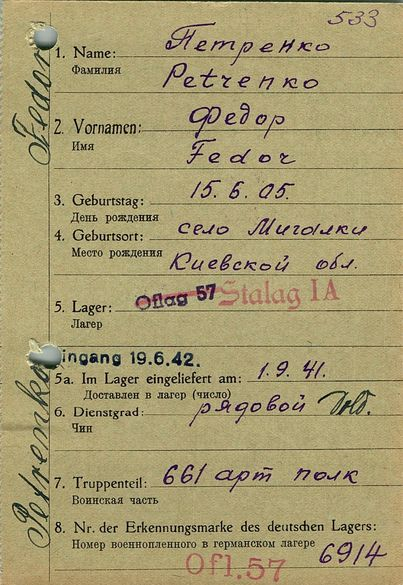 533
1. Name: Петренко
Фамилия
Petrenko
2. Vornamen: Федор
Имя
Fedor
3. Geburtstag: 15.6.05.
День рождения
4. Geburtsort: село Мигалки
Место рождения
Киевской обл.
5. Lager: Oflag 57 Stalag IA
Лагерь
Eingang 19.6.42.
5a. Im Lager eingeliefert am: 1.9.41.
Доставлен в лагерь (число)
6. Dienstgrad: рядовой Sold.
Чин
7. Truppenteil: 661 арт полк
Воинская часть
8. Nr. der Erkennungsmarke des deutschen Lagers:
Номер военнопленного в германском лагере
6914
Ofl. 57
Fedor
Petrenko